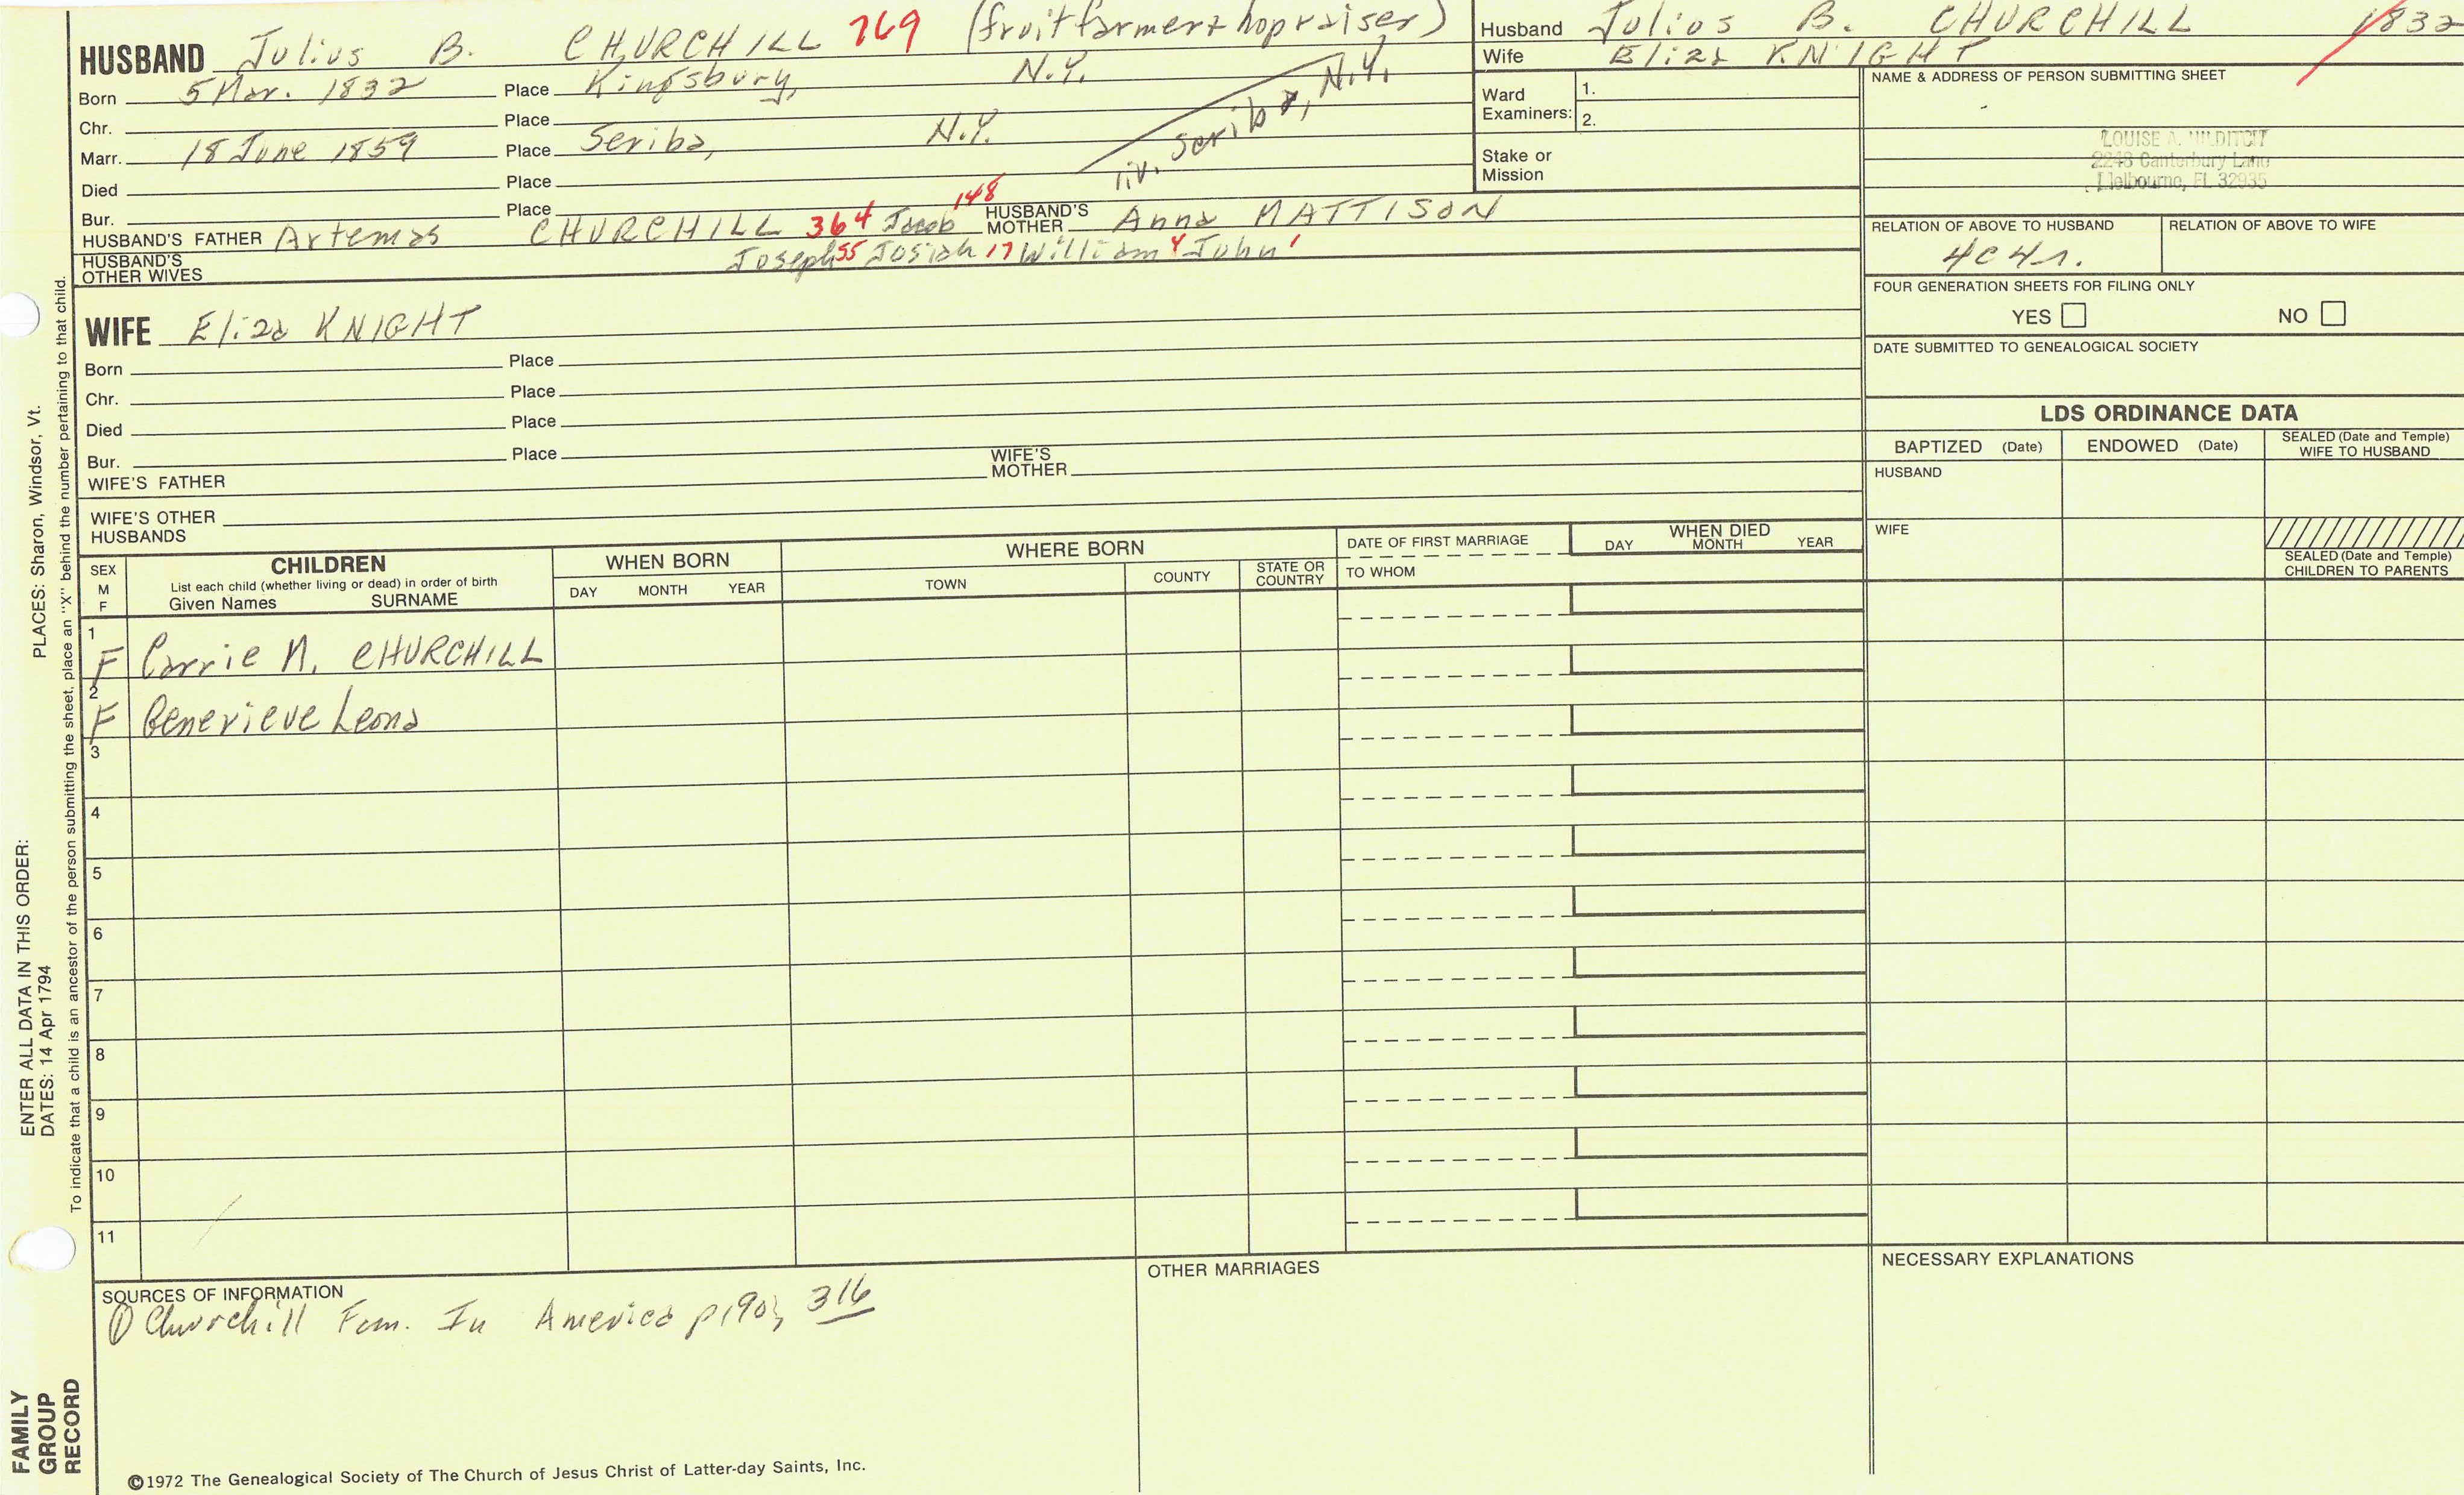 HUSBAND Julius B. CHURCHILL 769 (fruit farmer + hop raiser)
Born 5 Mar. 1832 Place Kingsbury, N.Y.
Chr. Place
Marr. 18 June 1859 Place Scriba, N.Y.
liv. Scriba, N.Y.
Died Place
Bur. Place
HUSBAND'S FATHER Artemas CHURCHILL 364 Jacob 148 HUSBAND'S MOTHER Anna MATTISON
Joseph 55 Josiah 17 William 4 John 1
HUSBAND'S OTHER WIVES
WIFE Eliza KNIGHT
Born Place
Chr. Place
Died Place
Bur. Place
WIFE'S FATHER WIFE'S MOTHER
WIFE'S OTHER HUSBANDS
Husband Julius B. CHURCHILL 1832
Wife Eliza KNIGHT
Ward Examiners: 1.
2.
Stake or Mission
NAME & ADDRESS OF PERSON SUBMITTING SHEET
LOUISE A. HILDITCH
2248 Canterbury Lane
Melbourne, FL 32935
RELATION OF ABOVE TO HUSBAND RELATION OF ABOVE TO WIFE
4c4r.
FOUR GENERATION SHEETS FOR FILING ONLY
YES NO
DATE SUBMITTED TO GENEALOGICAL SOCIETY
LDS ORDINANCE DATA
BAPTIZED (Date) ENDOWED (Date) SEALED (Date and Temple) WIFE TO HUSBAND
HUSBAND
WIFE
SEALED (Date and Temple) CHILDREN TO PARENTS
SEX M F
CHILDREN
List each child (whether living or dead) in order of birth
Given Names SURNAME
WHEN BORN
DAY MONTH YEAR
WHERE BORN
TOWN COUNTY STATE OR COUNTRY
DATE OF FIRST MARRIAGE
TO WHOM
WHEN DIED
DAY MONTH YEAR
1 F Carrie M. CHURCHILL
2 F Genevieve Leona
3
4
5
6
7
8
9
10
11
SOURCES OF INFORMATION
① Churchill Fam. In America p 190, 316
OTHER MARRIAGES
NECESSARY EXPLANATIONS
©1972 The Genealogical Society of The Church of Jesus Christ of Latter-day Saints, Inc.
FAMILY GROUP RECORD
ENTER ALL DATA IN THIS ORDER:
DATES: 14 Apr 1794
PLACES: Sharon, Windsor, Vt.
To indicate that a child is an ancestor of the person submitting the sheet, place an "X" behind the number pertaining to that child.